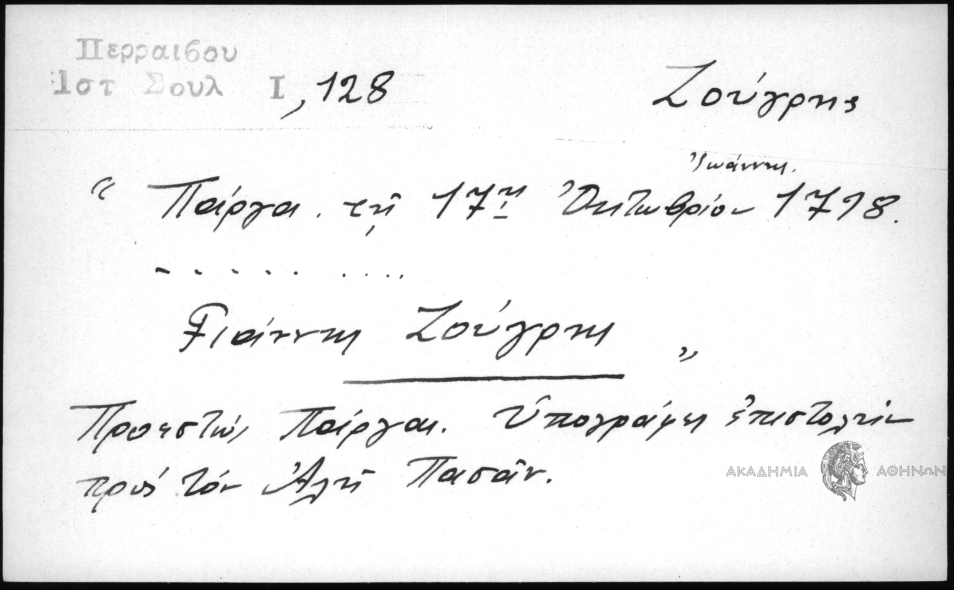 Περραιβου
Ιστ Σουλ Ι, 128
Ζούγρης
Ἰωάννης.
“ Πάργα. τῇ 17ῃ Ὀκτωβρίου 1798.
- . . . . . . . . .
Γιάννης Ζούγρης „
Προεστὼς Πάργας. Ὑπογράφει ἐπιστολὴν
πρὸς τὸν Ἀλῆ Πασᾶν.
ΑΚΑΔΗΜΙΑ ΑΘΗΝΩΝ